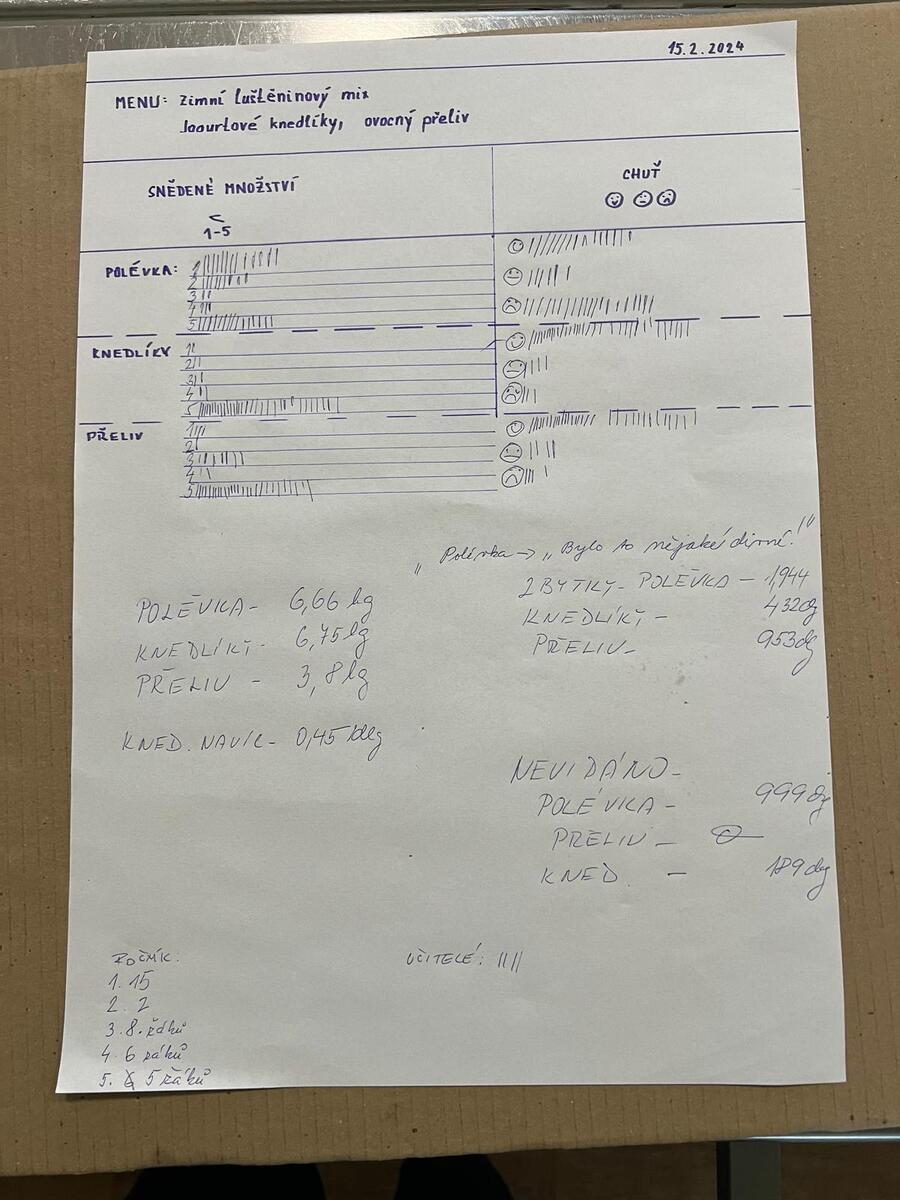 15.2.2024
MENU: Zimní luštěninový mix
Joourtové knedlíky, ovocný přeliv
SNĚDENÉ MNOŽSTVÍ
CHUŤ
1-5
POLÉVKA:
1
2
3
4
5
KNEDLÍKY
1
2
3
4
5
PŘELIV
1
2
3
4
5
"Polévka → „Bylo to nějaké divné!"
POLÉVKA - 6,66 kg
KNEDLÍKY - 6,75 kg
PŘELIV - 3,8 kg
KNED. NAVÍC - 0,45
ZBYTKY - POLÉVKA - 1,944
KNEDLÍKY - 432dg
PŘELIV - 953dg
NEVIDÁNO -
POLÉVKA - 999dg
PŘELIV -
KNED. - 189dg
ROČNÍK:
1. 15
2. 2
3. 8. žáků
4. 6 žáků
5. 5 žáků
UČITELÉ: ||||